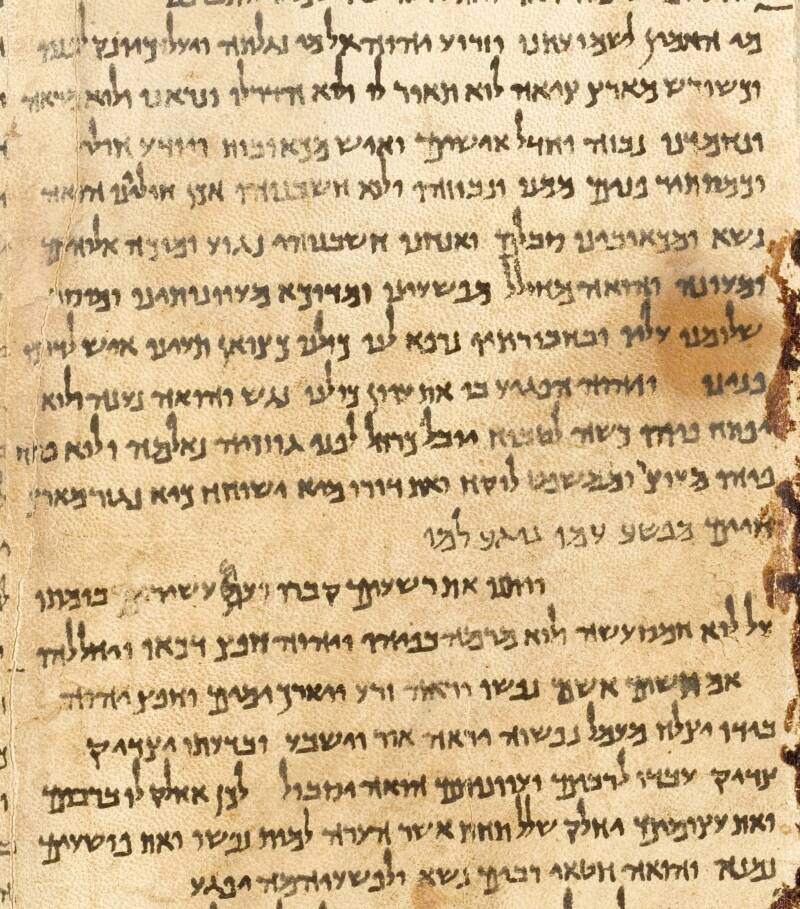 מי האמין לשמועתנו וזרוע יהוה אל מי נגלתה ויעל כיונק לפניו
וכשורש מארץ ציאה לוא תאור לו ולוא הדר לו ונראנו ולוא מראה
ונחמדנו נבזה וחדל אישים ואיש מכאובות ויודע חולי
וכמסתיר פנים ממנו ונבוזהו ולוא חשבנוהו אכן חוליינו הואה
נשא ומכאובינו סבלם ואנחנו חשבנוהו נגוע ומוכה אלוהים
ומעונה והואה מחולל מפשעינו ומדוכא מעוונותינו ומוסר
שלומנו עליו ובחבורתיו נרפא לנו כולנו כצואן תעינו איש לדרכו
פנינו ויהוה הפגיע בו את עוון כולנו נגש והואה נענה ולוא
יפתח פיהו כשה לטבוח יובל כרחל לפני גוזזיה נאלמה ולוא פתח
פיהו מעוצר וממשפט לוקח ואת דורו מיא ישוחח כיא נגזר מארץ
חיים מפשע עמו נוגע למו
ויתנו את רשעים קברו ועם עשיר בומתו
על לוא חמס עשה ולוא מרמה בפיהו ויהוה חפץ דכאו ויחללהו
אם תשים אשם נפשו יראה זרע ויארך ימים וחפץ יהוה
בידו יצלח מעמל נפשוה יראה אור וישבע ובדעתו יצדיק
צדיק עבדו לרבים ועוונותם הואה יסבול לכן אחלק לו ברבים
ואת עצומים יחלק שלל תחת אשר הערה למות נפשו ואת פושעים
נמנה והואה חטאי רבים נשא ולפשעיהמה יפגע